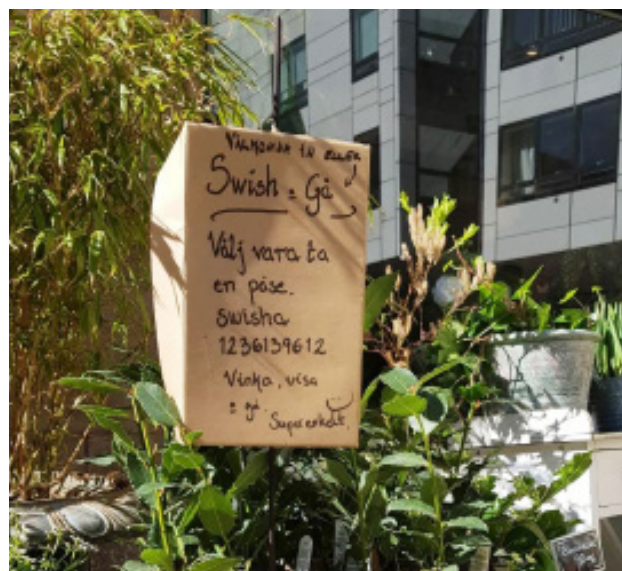 VÄLKOMNA IN ELLER
Swish & Gå
Välj vara ta
en påse.
swisha
1236139612
Vinka, visa
& gå.
Superenkelt.